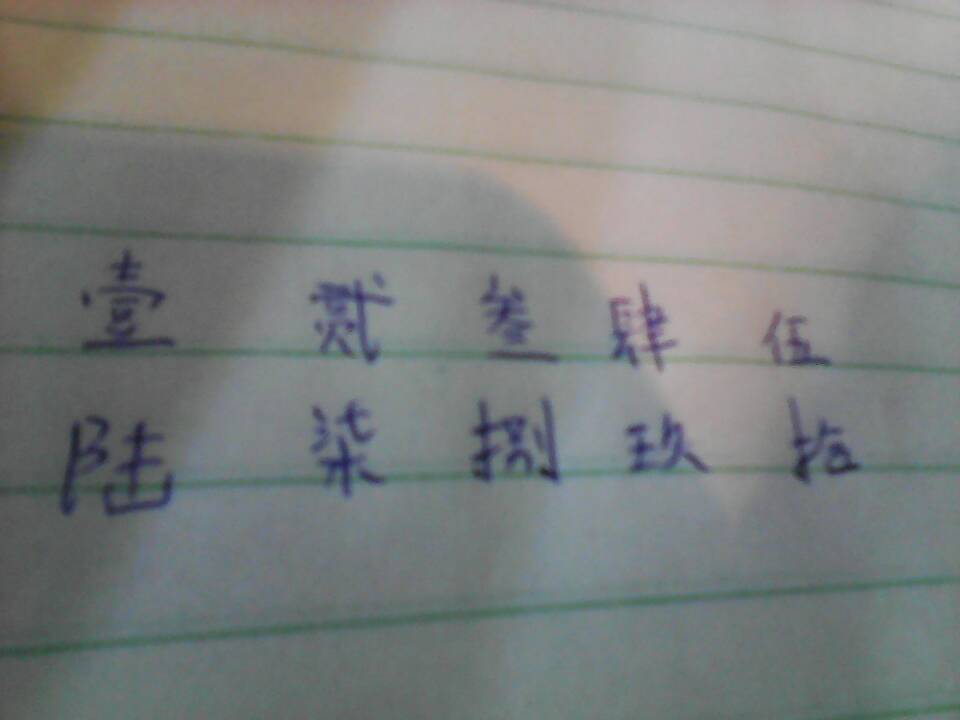 壹 贰 叁 肆 伍
陆 柒 捌 玖 拾